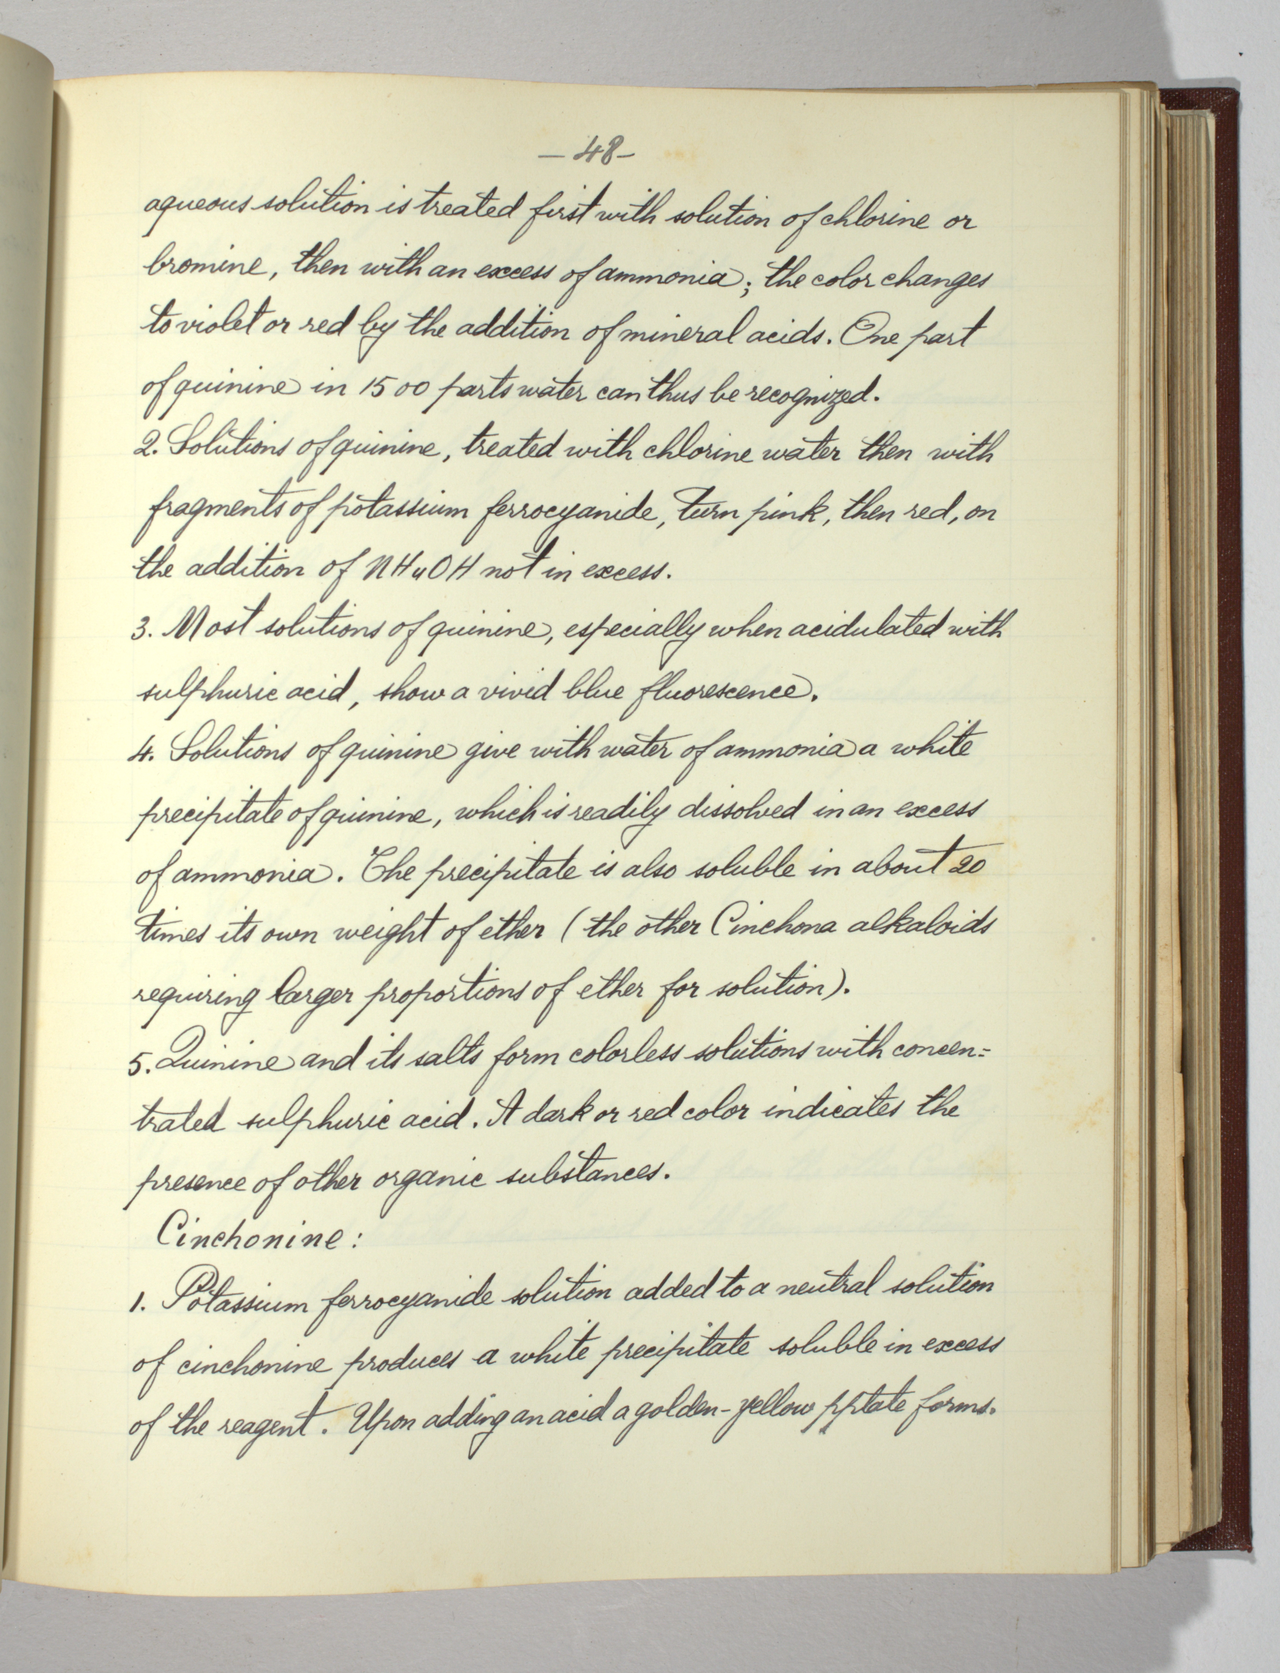 — 48 –
aqueous solution is treated first with solution of chlorine or
bromine, then with an excess of ammonia; the color changes
to violet or red by the addition of mineral acids. One part
of quinine in 1500 parts water can thus be recognized.
2. Solutions of quinine, treated with chlorine water then with
fragments of potassium ferrocyanide, turn pink, then red, on
the addition of NH₄OH not in excess.
3. Most solutions of quinine, especially when acidulated with
sulphuric acid, show a vivid blue fluorescence.
4. Solutions of quinine give with water of ammonia a white
precipitate of quinine, which is readily dissolved in an excess
of ammonia. The precipitate is also soluble in about 20
times its own weight of ether (the other Cinchona alkaloids
requiring larger proportions of ether for solution).
5. Quinine and its salts form colorless solutions with concen=
trated sulphuric acid. A dark or red color indicates the
presence of other organic substances.
Cinchonine:
1. Potassium ferrocyanide solution added to a neutral solution
of cinchonine produces a white precipitate soluble in excess
of the reagent. Upon adding an acid a golden-yellow pptate forms.